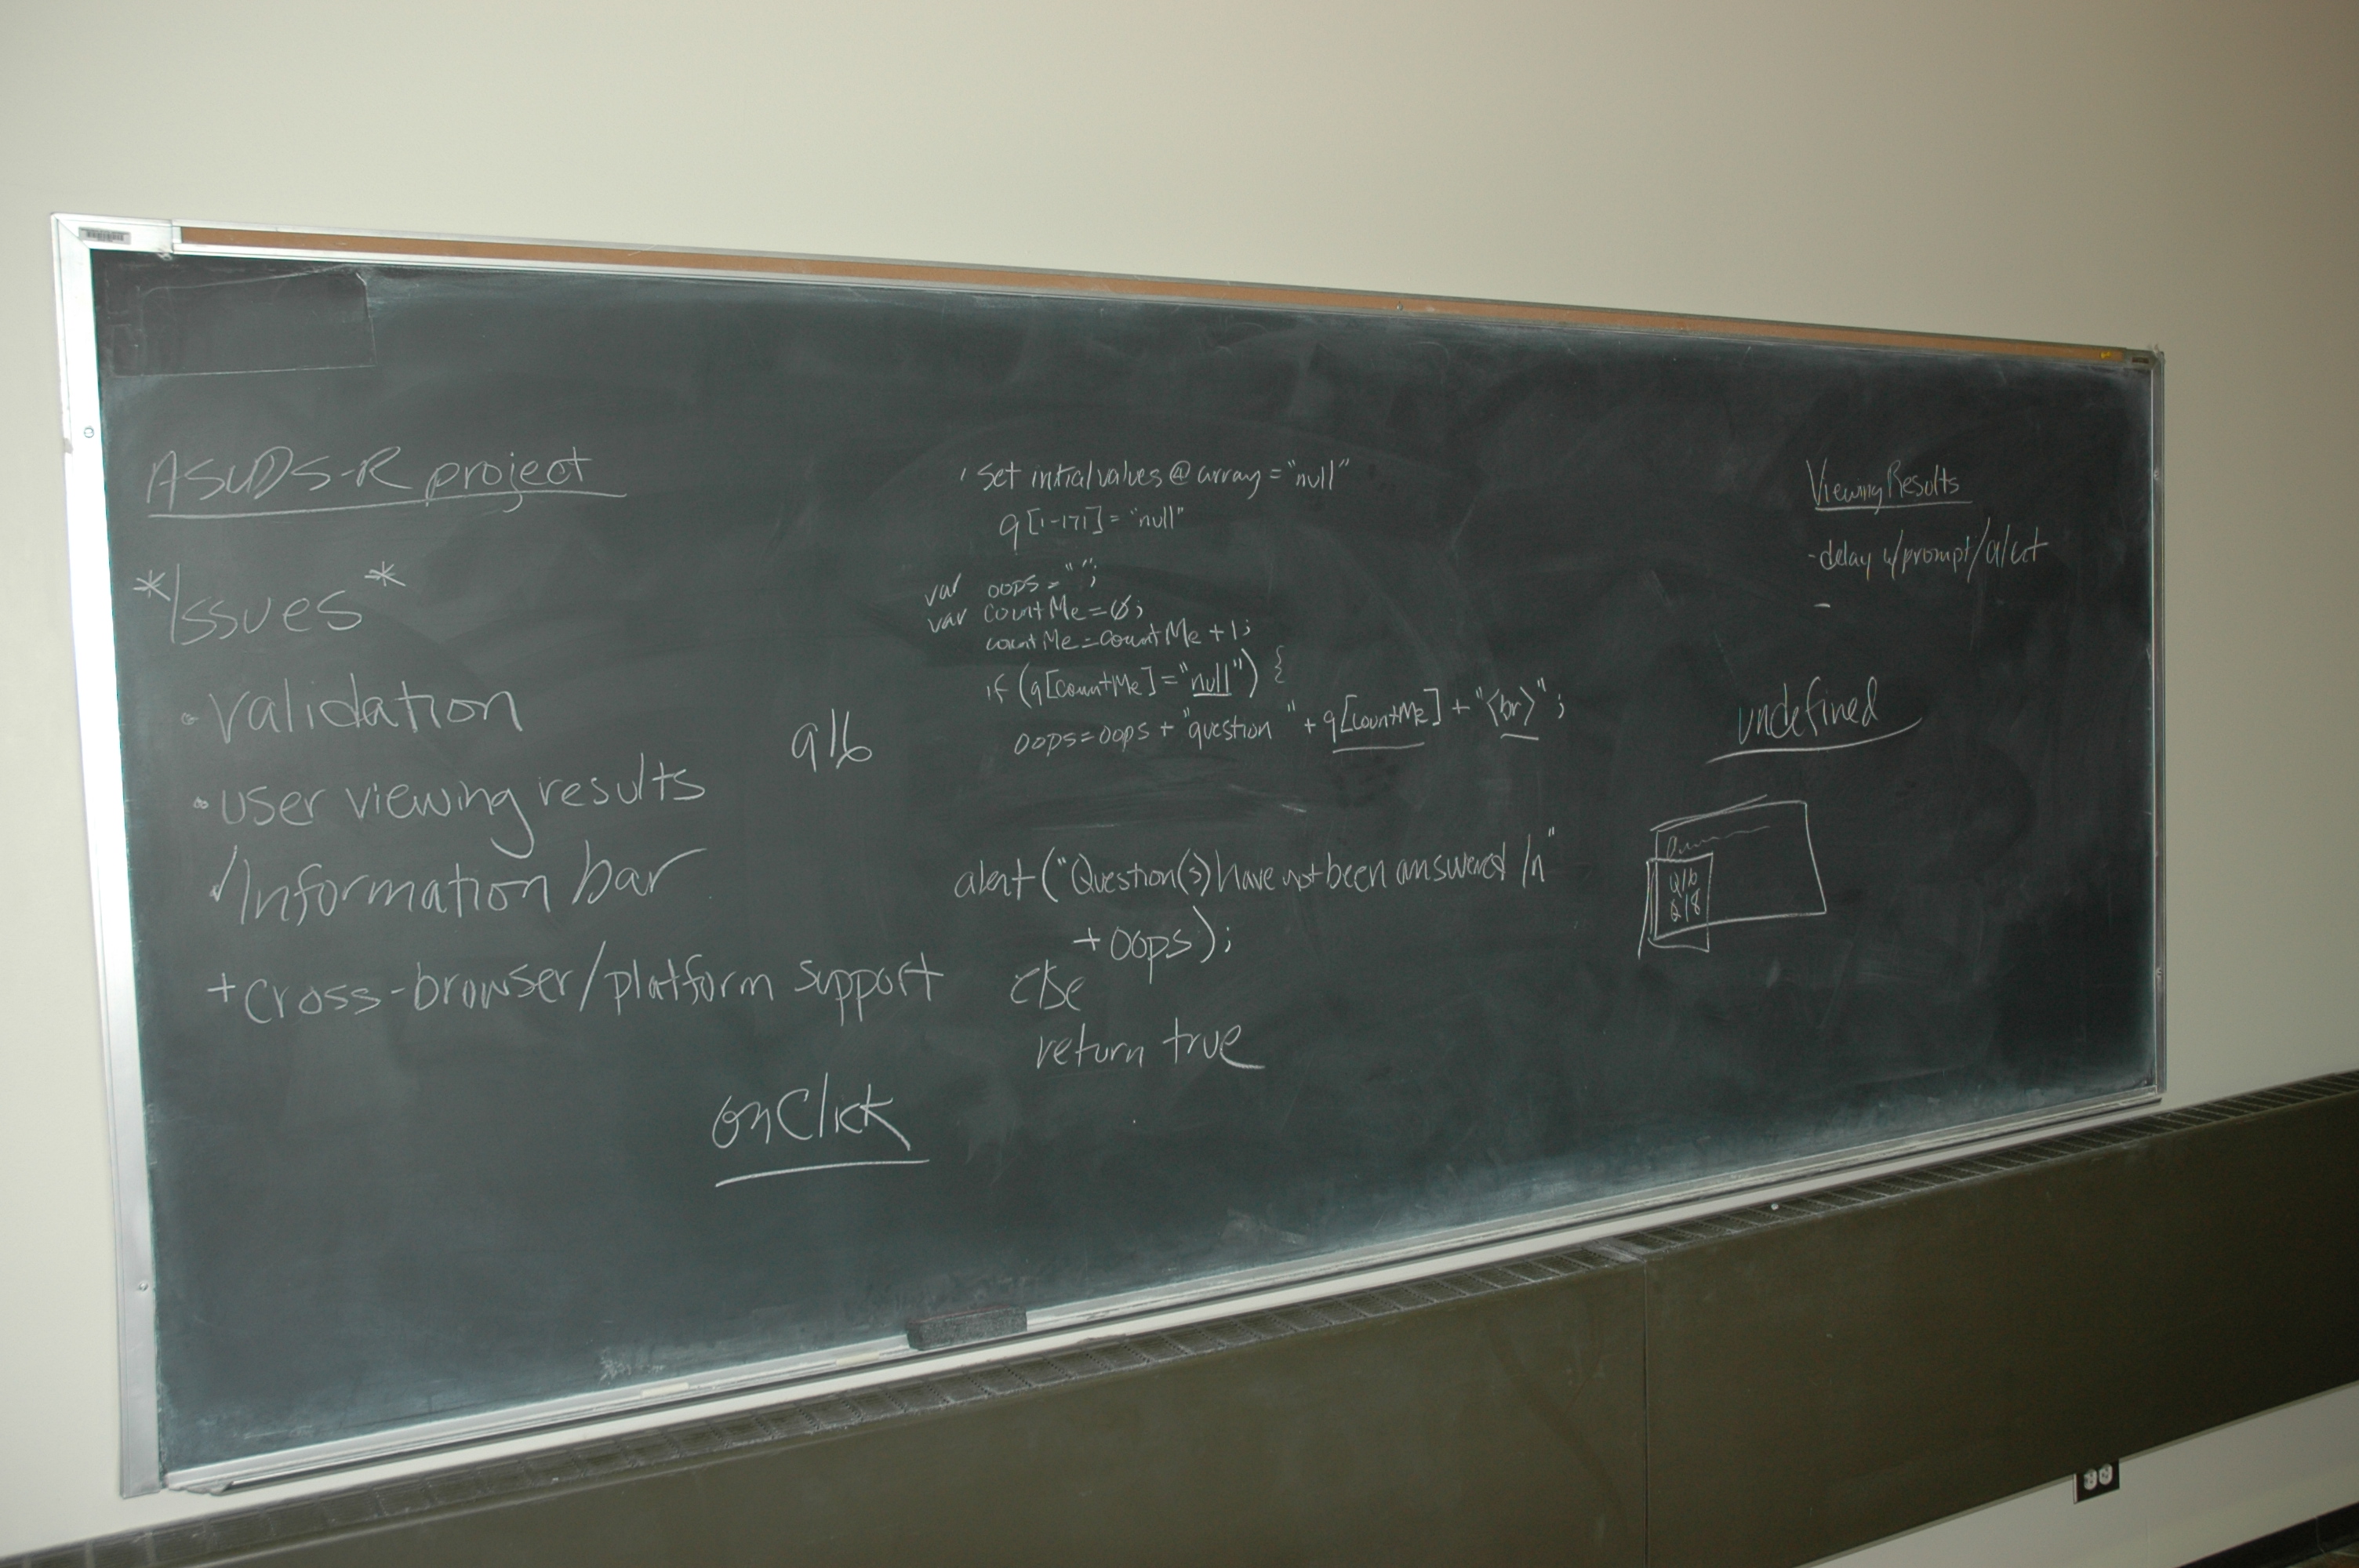 ASUDS-R project
*Issues*
• validation
• user viewing results
✓ Information bar
+ cross-browser/platform support
q16
onClick
' Set initial values @ array = "null"
q[1-171] = "null"
var oops = "";
var countMe = 0;
countMe = countMe + 1;
if (q[countMe] = "null") {
oops = oops + "question " + q[countMe] + "<br>";
alert ("Question(s) have not been answered /n"
+ oops);
else
return true
Viewing Results
- delay w/prompt/alert
-
undefined
Q16
Q18